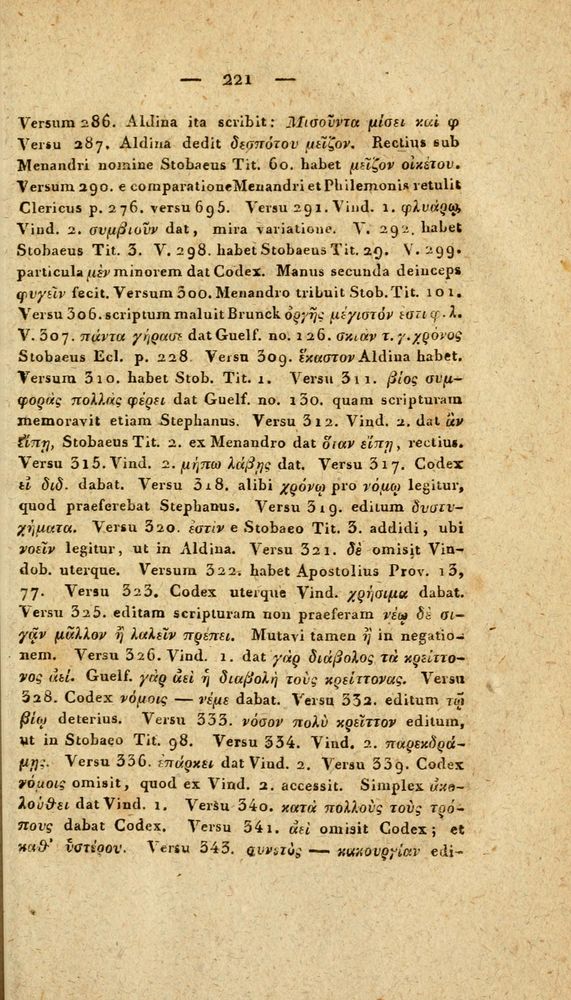 — 221 —
Versum 286. Aldina ita scribit: Μισοῦντα μίσει καὶ φ
Versu 287. Aldina dedit δεσπότου μεῖζον. Rectius sub
Menandri nomine Stobaeus Tit. 60. habet μεῖζον οἰκέτου.
Versum 290. e comparatione Menandri et Philemonis retulit
Clericus p. 276. versu 695. Versu 291. Vind. 1. φλυάρῳ,
Vind. 2. συμβιοῦν dat, mira variatione. V. 292. habet
Stobaeus Tit. 3. V. 298. habet Stobaeus Tit. 29. V. 299.
particula μὲν minorem dat Codex. Manus secunda deinceps
φυγεῖν fecit. Versum 300. Menandro tribuit Stob. Tit. 101.
Versu 306. scriptum maluit Brunck ὀργῆς μέγιστόν εστι φ. λ.
V. 307. πάντα γήρασε dat Guelf. no. 126. σκιαν τ. γ. χρόνος
Stobaeus Ecl. p. 228. Versu 309. ἕκαστον Aldina habet.
Versum 310. habet Stob. Tit. 1. Versu 311. βίος συμ-
φορὰς πολλὰς φέρει dat Guelf. no. 130. quam scripturam
memoravit etiam Stephanus. Versu 312. Vind. 2. dat ἂν
εἴπῃ, Stobaeus Tit. 2. ex Menandro dat ὅιαν εἴπῃ, rectius.
Versu 315. Vind. 2. μήπω λάβῃς dat. Versu 317. Codex
εἰ διδ. dabat. Versu 318. alibi χρόνῳ pro νόμῳ legitur,
quod praeferebat Stephanus. Versu 319. editum δυστυ-
χήματα. Versu 320. ἐστὶν e Stobaeo Tit. 3. addidi, ubi
νοεῖν legitur, ut in Aldina. Versu 321. δὲ omisit Vin-
dob. uterque. Versum 322. habet Apostolius Prov. 13,
77. Versu 323. Codex uterque Vind. χρήσιμα dabat.
Versu 325. editam scripturam non praeferam νέῳ δὲ σι-
γᾷν μᾶλλον ἢ λαλεῖν πρέπει. Mutavi tamen ἢ in negatio-
nem. Versu 326. Vind. 1. dat γὰρ διάβολος τὰ κρείττο-
νος ἀεί. Guelf. γὰρ ἀεὶ ἡ διαβολὴ τοὺς κρείττονας. Versu
328. Codex νόμοις — νέμε dabat. Versu 332. editum τῷ
βίῳ deterius. Versu 333. νόσον πολὺ κρεῖττον editum,
ut in Stobaeo Tit. 98. Versu 334. Vind. 2. παρεκδρά-
μῃς. Versu 336. ἐπάρκει dat Vind. 2. Versu 339. Codex
νόμοις omisit, quod ex Vind. 2. accessit. Simplex ἀκο-
λούθει dat Vind. 1. Versu 340. κατὰ πολλοὺς τοὺς τρό-
πους dabat Codex. Versu 341. ἀεὶ omisit Codex; et
καθ' ὑστέρου. Versu 343. συνετὸς — κακουργίαν edi-